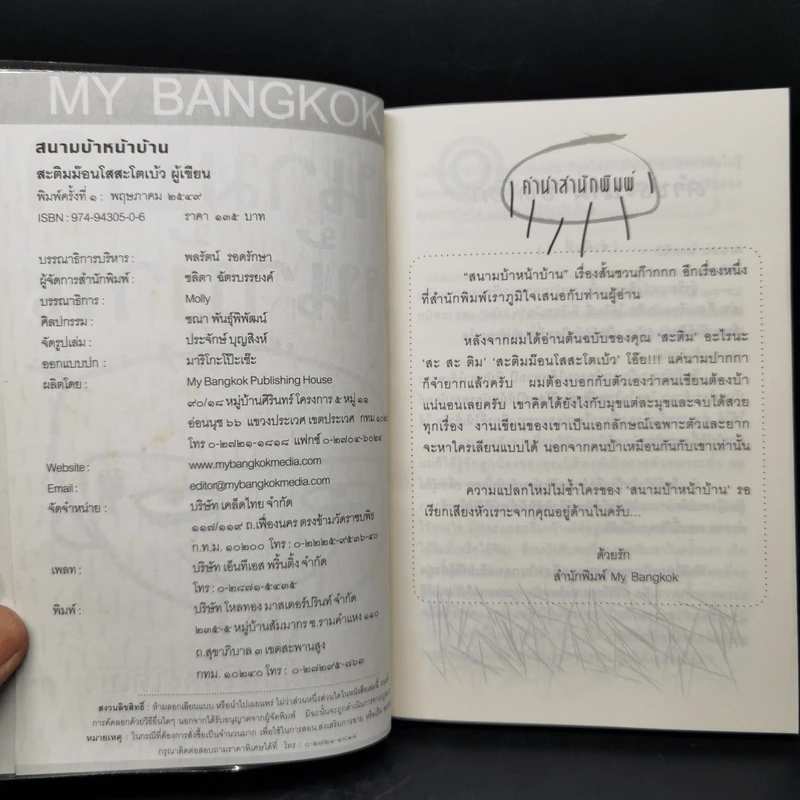 MY BANGKOK
สนามบ้าหน้าบ้าน
สะติมม๊อนโสสะโตเบ้ว ผู้เขียน
พิมพ์ครั้งที่ ๑ : พฤษภาคม ๒๕๔๙
ISBN : 974-94305-0-6 ราคา ๑๓๕ บาท
บรรณาธิการบริหาร : พลรัตน์ รอดรักษา
ผู้จัดการสำนักพิมพ์ : ชลิตา ฉัตรบรรยงค์
บรรณาธิการ : Molly
ศิลปกรรม : ชณา พันธุ์พิพัฒน์
จัดรูปเล่ม : ประจักษ์ บุญสิงห์
ออกแบบปก : มาริโกะโป๊ะเช๊ะ
ผลิตโดย : My Bangkok Publishing House
๙๐/๑๘ หมู่บ้านศิรินทร์โครงการ ๕ หมู่ ๑๑
อ่อนนุช ๖๖ แขวงประเวศ เขตประเวศ กทม
โทร ๐-๒๗๒๑-๑๘๑๘ แฟกซ์ ๐-๒๗๐๔-๖๐๒๔
Website : www.mybangkokmedia.com
Email : editor@mybangkokmedia.com
จัดจำหน่าย : บริษัท เคล็ดไทย จำกัด
๑๑๗/๑๑๙ ถ.เฟื่องนคร ตรงข้ามวัดราชบพิธ
ก.ท.ม. ๑๐๒๐๐ โทร : ๐-๒๒๒๕-๙๕๓๖-๔๐
เพลท : บริษัท เอ็นทีเอส พริ้นติ้ง จำกัด
โทร : ๐-๒๘๗๑-๕๔๓๕
พิมพ์ : บริษัท โหลทอง มาสเตอร์ปรินท์ จำกัด
๒๓๕-๕ หมู่บ้านสัมมากร ซ.รามคำแหง ๑๑๐
ถ.สุขาภิบาล ๓ เขตสะพานสูง
กทม. ๑๐๒๔๐ โทร : ๐-๒๗๒๙๕-๘๖๓
สงวนลิขสิทธิ์ : ห้ามลอกเลียนแบบ หรือนำไปเผยแพร่ ไม่ว่าส่วนหนึ่งส่วนใดในหนังสือเล่มนี้
การคัดลอกด้วยวิธีอื่นใดๆ นอกจากได้รับอนุญาตจากผู้จัดพิมพ์ มิฉะนั้นจะถูกดำเนินการทาง
หมายเหตุ : ในกรณีที่ต้องการสั่งซื้อเป็นจำนวนมาก เพื่อใช้ในการสอน,ส่งเสริมการขาย
กรุณาติดต่อสอบถามราคาพิเศษได้ที่ โทร : ๐-๒๗๒๑-๑๘๑๘
คำนำสำนักพิมพ์
“สนามบ้าหน้าบ้าน” เรื่องสั้นชวนก๊ากกก อีกเรื่องหนึ่ง
ที่สำนักพิมพ์เราภูมิใจเสนอกับท่านผู้อ่าน
หลังจากผมได้อ่านต้นฉบับของคุณ ‘สะติม’ อะไรนะ
‘สะ สะ ติม’ ‘สะติมม๊อนโสสะโตเบ้ว’ โอ๊ย!!! แค่นามปากกา
ก็จำยากแล้วครับ ผมต้องบอกกับตัวเองว่าคนเขียนต้องบ้า
แน่นอนเลยครับ เขาคิดได้ยังไงกับมุขแต่ละมุขและจบได้สวย
ทุกเรื่อง งานเขียนของเขาเป็นเอกลักษณ์เฉพาะตัวและยาก
จะหาใครเลียนแบบได้ นอกจากคนบ้าเหมือนกันกับเขาเท่านั้น
ความแปลกใหม่ไม่ซ้ำใครของ ‘สนามบ้าหน้าบ้าน’ รอ
เรียกเสียงหัวเราะจากคุณอยู่ด้านในครับ...
ด้วยรัก
สำนักพิมพ์ My Bangkok